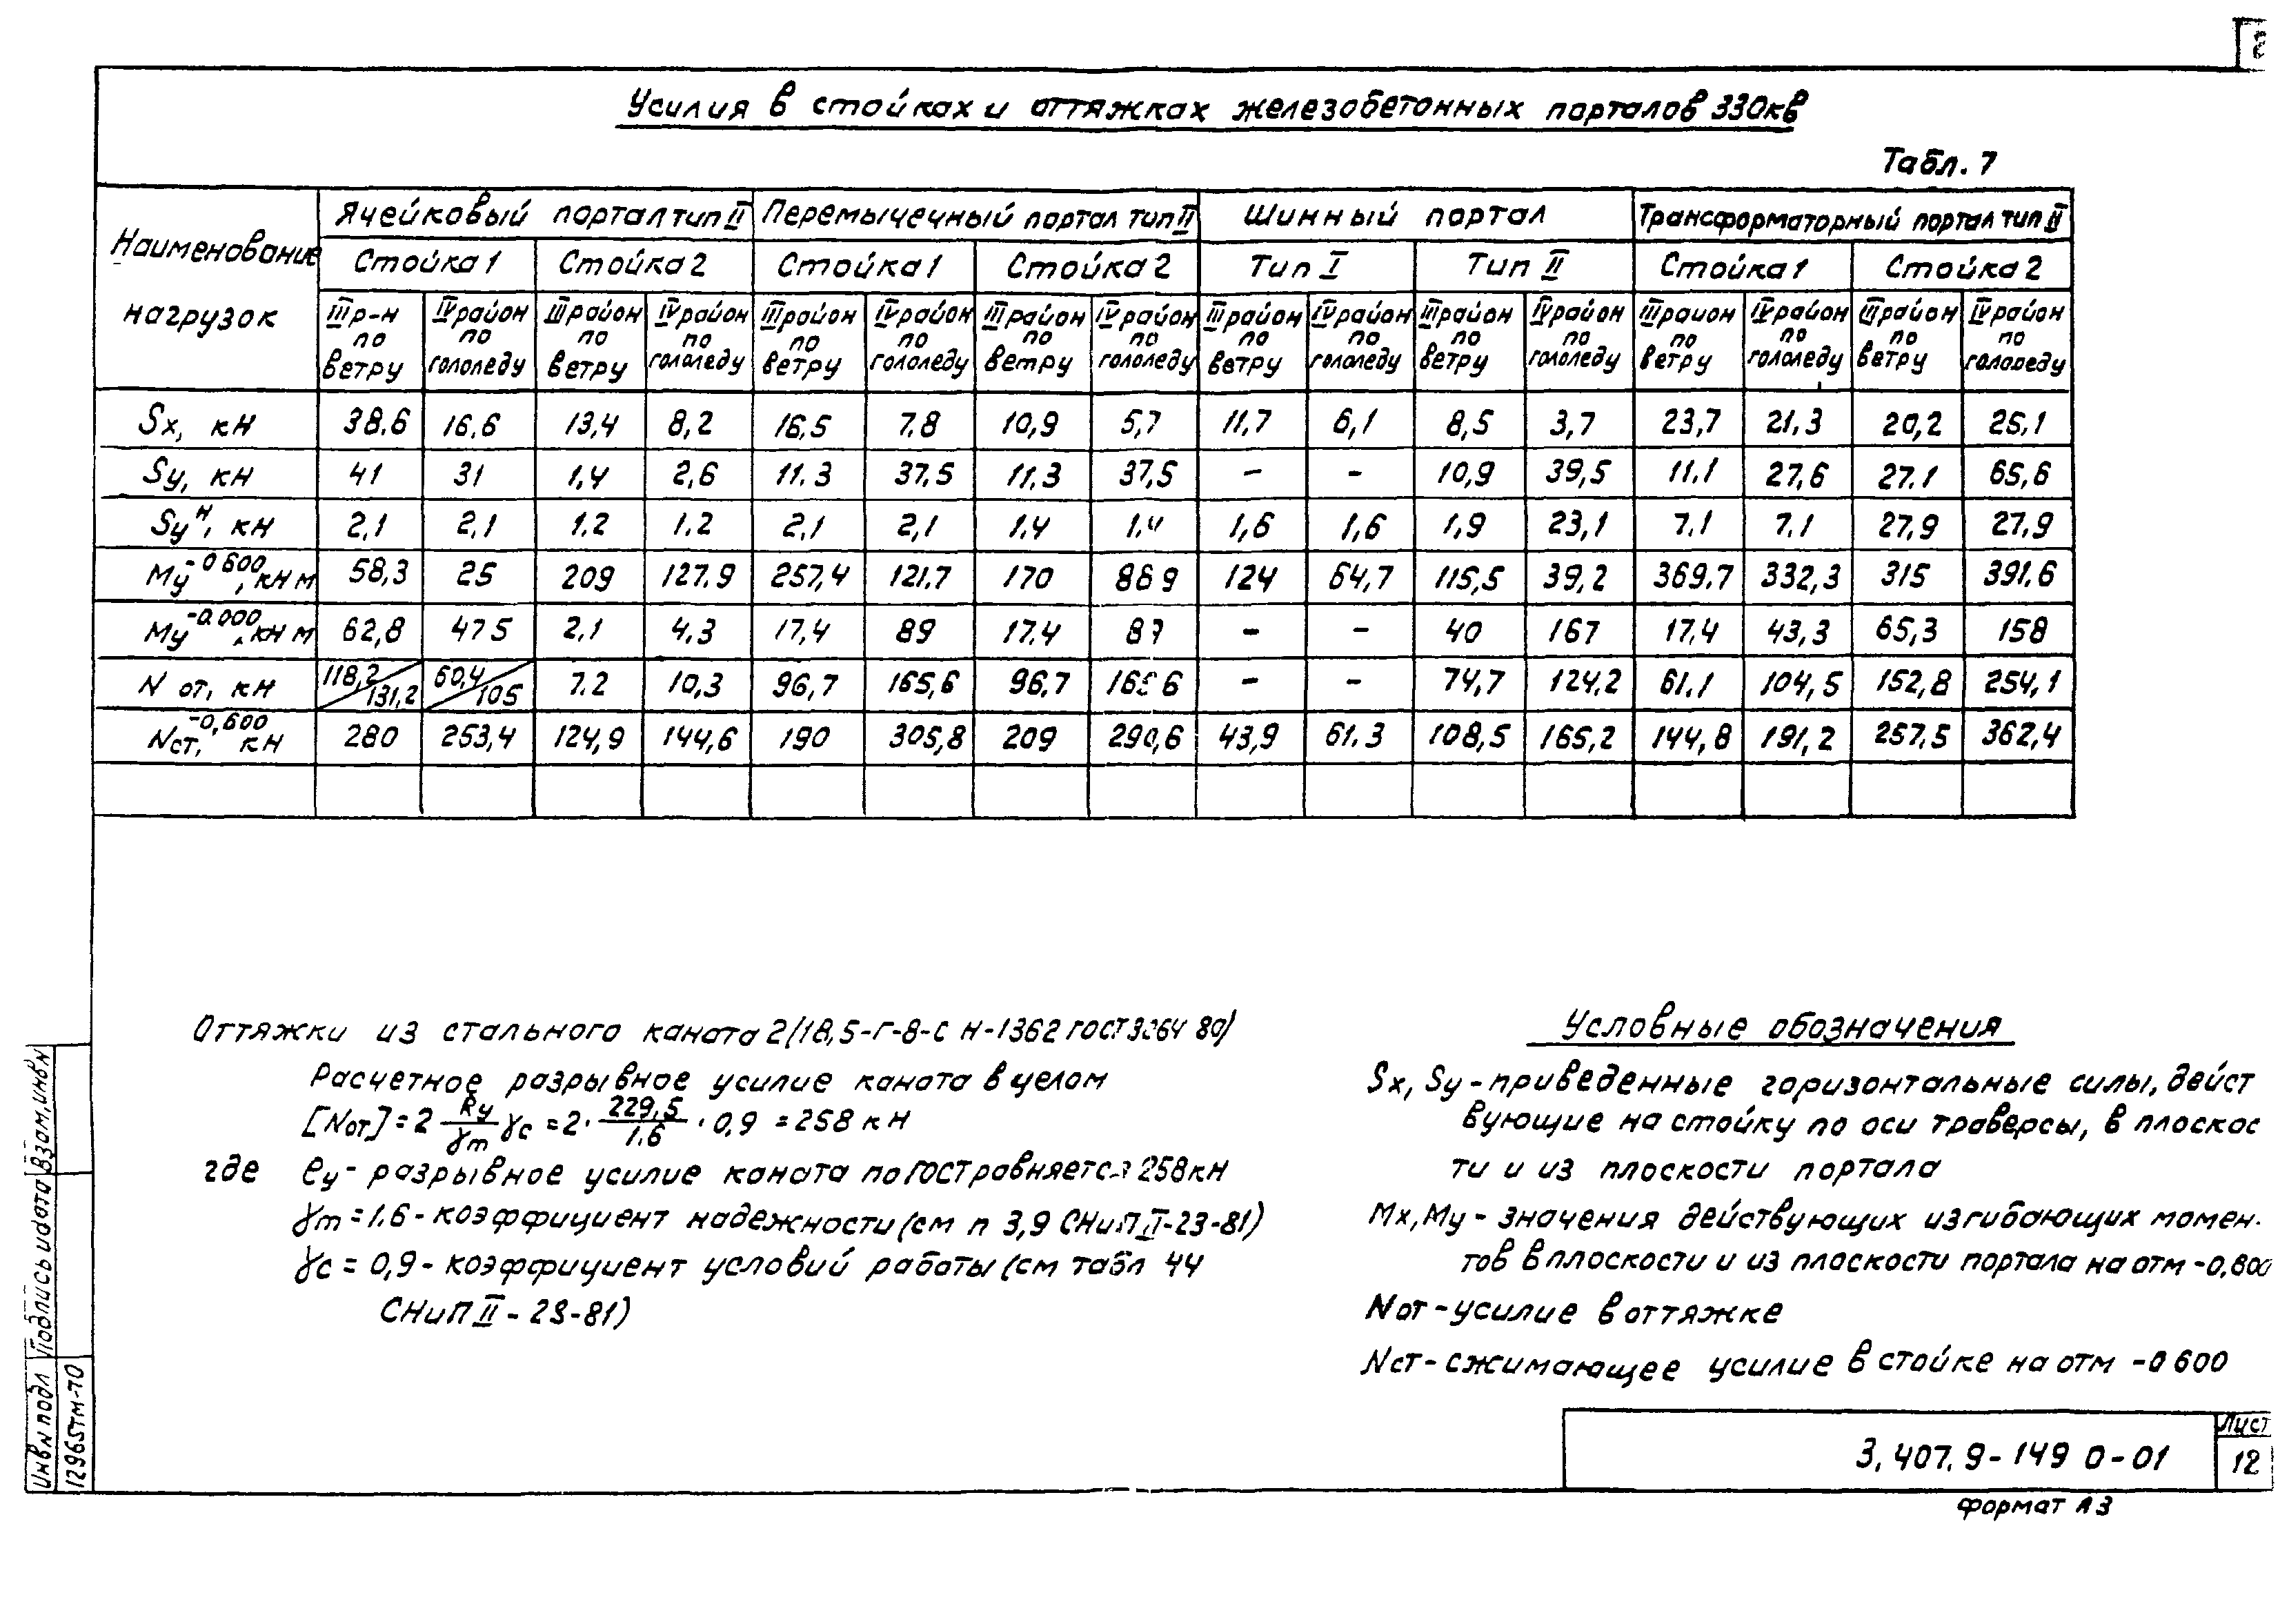 Усилия в стойках и оттяжках железобетонных порталов 330кв
Табл. 7
Наименование нагрузок | Ячейковый портал тип II | Перемычечный портал тип II | Шинный портал | Трансформаторный портал тип II
Стойка 1 | Стойка 2 | Стойка 1 | Стойка 2 | Тип I | Тип II | Стойка 1 | Стойка 2
III р-н по ветру | IV район по гололеду | III район по ветру | IV район по гололеду | III район по ветру | IV район по гололеду | III район по ветру | IV район по гололеду | III район по ветру | IV район по гололеду | III район по ветру | IV район по гололеду | III район по ветру | IV район по гололеду | III район по ветру | IV район по гололеду
Sx, кН | 38.6 | 16,6 | 13,4 | 8,2 | 16,5 | 7.8 | 10,9 | 5,7 | 11,7 | 6,1 | 8,5 | 3,7 | 23,7 | 21,3 | 20,2 | 25,1
Sy, кН | 41 | 31 | 1,4 | 2,6 | 11.3 | 37.5 | 11.3 | 37,5 | - | - | 10,9 | 39,5 | 11.1 | 27,6 | 27.1 | 65,6
Sy н, кН | 2,1 | 2,1 | 1.2 | 1.2 | 2,1 | 2,1 | 1,4 | 1.4 | 1,6 | 1,6 | 1,9 | 23,1 | 7.1 | 7.1 | 27,9 | 27,9
My -0 600, кН м | 58,3 | 25 | 209 | 127.9 | 257,4 | 121.7 | 170 | 86 9 | 124 | 64,7 | 115,5 | 39,2 | 369.7 | 332,3 | 315 | 391,6
My -0.000, кН м | 62,8 | 47 5 | 2.1 | 4.3 | 17,4 | 89 | 17.4 | 89 | - | - | 40 | 167 | 17,4 | 43,3 | 65,3 | 158
N от, кН | 118,2/131,2 | 60,4/105 | 7.2 | 10,3 | 96,7 | 165,6 | 96,7 | | - | - | 74,7 | 124,2 | 61.1 | 104,5 | 152,8 | 254,1
Nст, -0,600 кН | 280 | 253,4 | 124,9 | 144,6 | 190 | 305,8 | 209 | 290,6 | 43,9 | 61.3 | 108,5 | 165,2 | 144,8 | 191,2 | 257.5 | 362,4
Оттяжки из стального каната 2/18,5-Г-8-С Н-1362 ГОСТ 80)
Расчетное разрывное усилие каната в целом
[Nот]=2 Ry/γm γc = 2· 229,5/1,6 · 0,9 = 258 кН
где Ry- разрывное усилие каната по ГОСТ равняется 258кН
γm=1.6- коэффициент надежности (см п 3,9 СНиП II-23-81)
γc = 0,9- коэффициент условий работы (см табл 44
СНиП II - 23-81)
Условные обозначения
Sx, Sy - приведенные горизонтальные силы, дейст
вующие на стойку по оси траверсы, в плоскос
ти и из плоскости портала
Mx, My - значения действующих изгибающих момен-
тов в плоскости и из плоскости портала на отм -0,600
Nот - усилие в оттяжке
Nст - сжимающее усилие в стойке на отм -0 600
Инв N подл Подпись и дата Взам, инв N
12965тм-т0
3. 407. 9-149 0-01
Лист
12
формат А3